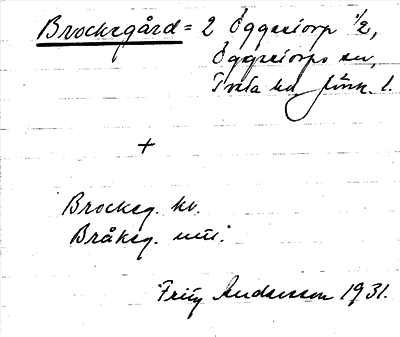 Brockegård = 2 Öggestorp 1/2,
Öggestorps sn,
Tveta hd, Jönk. l.
+
Brockeg. kv.
Bråkeg. uttl.
Fritz Andersson 1931.